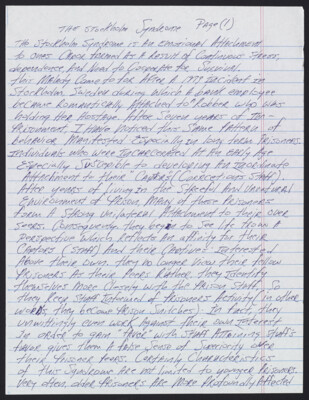 THE STOCKHOLM SYNDROME PAGE (1)
THE STOCKHOLM SYNDROME IS AN EMOTIONAL ATTACHMENT
TO ONES CAPTOR FORMED AS A RESULT OF CONTINUOUS STRESS,
DEPENDENCE AND NEED TO COOPERATE FOR SURVIVAL.
THIS MALADY CAME TO BE AFTER A 1973 INCIDENT IN
STOCKHOLM SWEDEN DURING WHICH A BANK EMPLOYEE
BECAME ROMANTICALLY ATTACHED TO A ROBBER WHO WAS
HOLDING HER HOSTAGE. AFTER SEVEN YEARS OF IM-
PRISONMENT, I HAVE NOTICED THIS SAME PATTERN OF
BEHAVIOR MANIFESTED ESPECIALLY IN LONG TERM PRISONERS.
INDIVIDUALS WHO WERE INCARCERATED AT AN EARLY AGE
ESPECIALLY SUSCEPTIBLE TO DEVELOPING AN
ATTACHMENT TO THEIR CAPTORS (CORRECTIONS STAFF).
AFTER YEARS OF LIVING IN THE STRESSFUL AND UNNATURAL
ENVIRONMENT OF PRISON, MANY OF THESE PRISONERS
FORM A STRONG UNILATERAL ATTACHMENT TO THEIR OVER
SEERS. CONSEQUENTLY THEY BEGIN TO SEE LIFE FROM A
PERSPECTIVE WHICH REFLECTS AN AFFINITY FOR THEIR
CAPTORS (STAFF) AND THEIR CAPTORS' INTERESTS
ABOVE THEIR OWN. THEY NO LONGER VIEW THEIR FELLOW
PRISONERS AS THEIR PEERS RATHER, THEY IDENTIFY
THEMSELVES MORE CLOSELY WITH THE PRISON STAFF. SO
THEY KEEP STAFF INFORMED OF PRISONERS ACTIVITY (IN OTHER
WORDS THEY BECOME PRISON SNITCHES). IN FACT, THEY
UNWITTINGLY EVEN WORK AGAINST THEIR OWN INTEREST
IN ORDER TO GAIN "FAVOR" WITH STAFF. ATTAINING STAFF'S
FAVOR GIVES THEM A FALSE SENSE OF SUPERIORITY OVER
THEIR PRISONER PEERS. CERTAINLY CHARACTERISTICS
OF THIS SYNDROME ARE NOT LIMITED TO YOUNGER PRISONERS.
VERY OFTEN, OLDER PRISONERS ARE MORE PROFOUNDLY AFFECTED